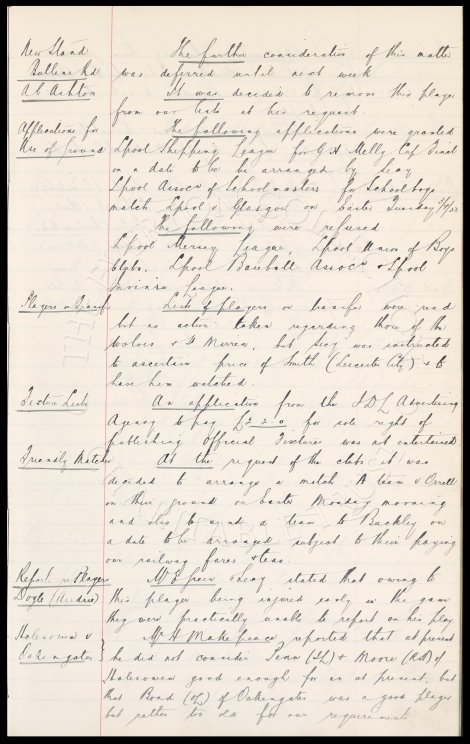 New Stand The further consideration of this matter
Bullens Rd was deferred until next week
A C Ashton It was decided to remove this player
from our lists at his request.
Applications for The following applications were granted
Use of Ground Lpool Shipping League for G H Melly Cup Final
on a date to be arranged by Secy
Lpool Assocn of Schoolmasters for Schoolboys
match Lpool v Glasgow on Easter Tuesday
The following were refused
Lpool Mersey League, Lpool Union of Boys
Clubs, Lpool Baseball Assocn & Lpool
Juniors League.
Players on Transfer Lists of players on transfer were read
but no action taken regarding those of the
Wolves & St Mirren, but Secy was instructed
to ascertain price of Smith (Leicester City) & to
have him watched.
Fixture Lists An application from the I D L Advertising
Agency to pay £2.2.0 for sole right of
publishing Official Fixtures was not entertained
Friendly Matches At the request of the clubs it was
decided to arrange a match A team v Orrell
on their ground on Easter Monday morning
and also to send a team to Buckley on
a date to be arranged subject to their paying
our railway fares & teas.
Report re Player Mr E Green & Secy stated that owing to
Doyle (Airdrie) this player being injured early in the game
they were practically unable to report on his play.
Halesowen v Mr H Makepeace reported that at present
Oakengates he did not consider & Moore of
Halesowen good enough for us at present, but
that Bond of Oakengates was a good player
but rather too old for our requirements